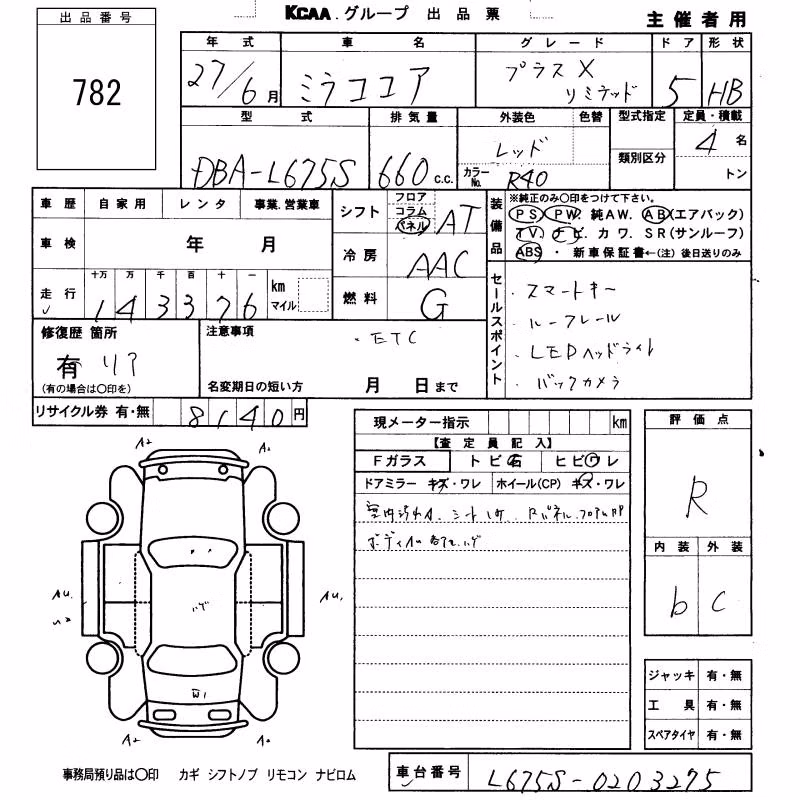 出品番号
782
KCAA グループ 出品票
主催者用
年式 車名 グレード ドア 形状
27/6月 ミラココア プラスX リミテッド 5 HB
型式 排気量 外装色 色替 型式指定 定員・積載
DBA-L675S 660 c.c. レッド 類別区分 4名
カラーNo. R40 トン
車歴 自家用 レンタ 事業.営業車
車検 年 月
走行 十万 万 千 百 十 一 km マイル
143376
シフト フロア コラム パネル AT
冷房 AAC
燃料 G
装備品 ※純正のみ〇印をつけて下さい。
PS PW. 純AW. AB(エアバック)
TV. ナビ. カワ. SR(サンルーフ)
ABS ・ 新車保証書←(注) 後日送りのみ
セールスポイント
・スマートキー
・ルーフレール
・LEDヘッドライト
・バックカメラ
修復歴 箇所
有 リア
(有の場合は〇印を)
注意事項
・ETC
名変期日の短い方 月 日まで
リサイクル券 有・無 8140円
現メーター指示 km
【査定員記入】
Fガラス トビ石 ヒビワレ
ドアミラー キズ・ワレ ホイール(CP) キズ・ワレ
評価点
R
内装 外装
b C
ジャッキ 有・無
工具 有・無
スペアタイヤ 有・無
A2 A2
AU. AU,
ハゲ
A2 A2
事務局預り品は〇印 カギ シフトノブ リモコン ナビロム
車台番号 L675S-0203275